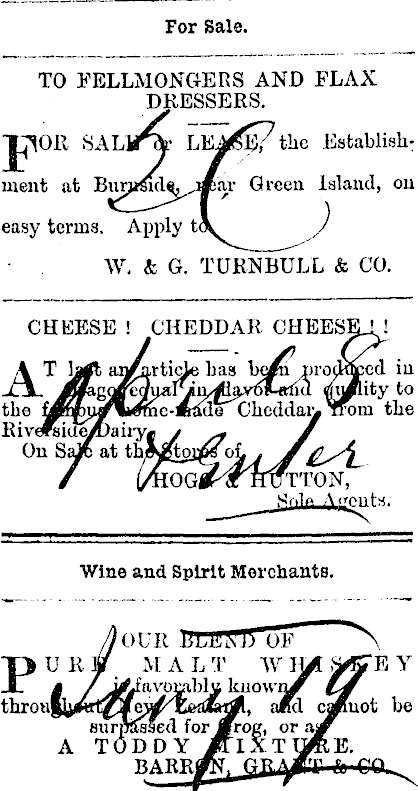 For Sale.
TO FELLMONGERS AND FLAX
DRESSERS.
FOR SALE or LEASE, the Establish-
ment at Burnside, near Green Island, on
easy terms. Apply to
W. & G. TURNBULL & CO.
CHEESE! CHEDDAR CHEESE!!
AT last an article has been produced in
Otago equal in flavor and quality to
the famous home-made Cheddar, from the
Riverside Dairy.
On Sale at the Stores of
HOGG & HUTTON,
Sole Agents.
Wine and Spirit Merchants.
OUR BLEND OF
PURE MALT WHISKEY
is favorably known
throughout New Zealand, and cannot be
surpassed for Grog, or as
A TODDY MIXTURE.
BARRON, GRANT & CO